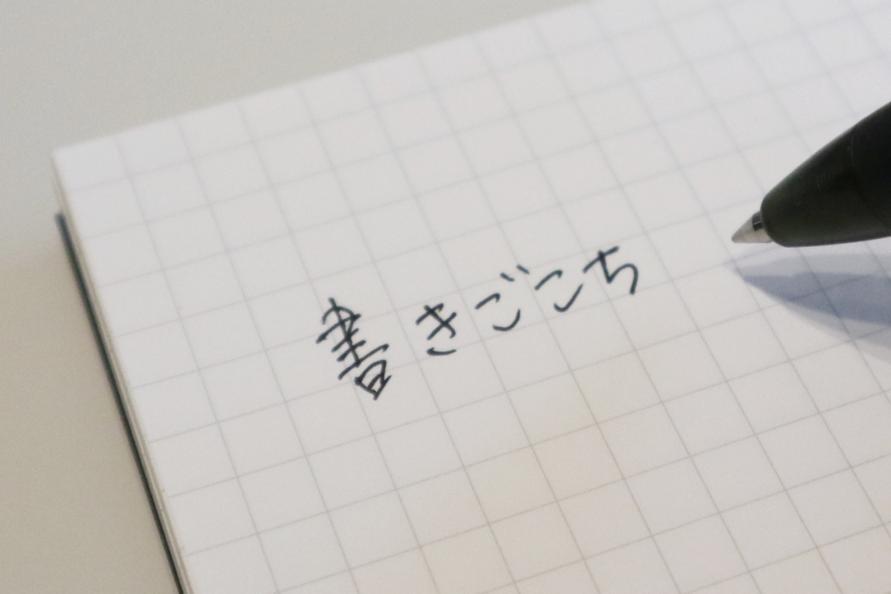 書きごこち